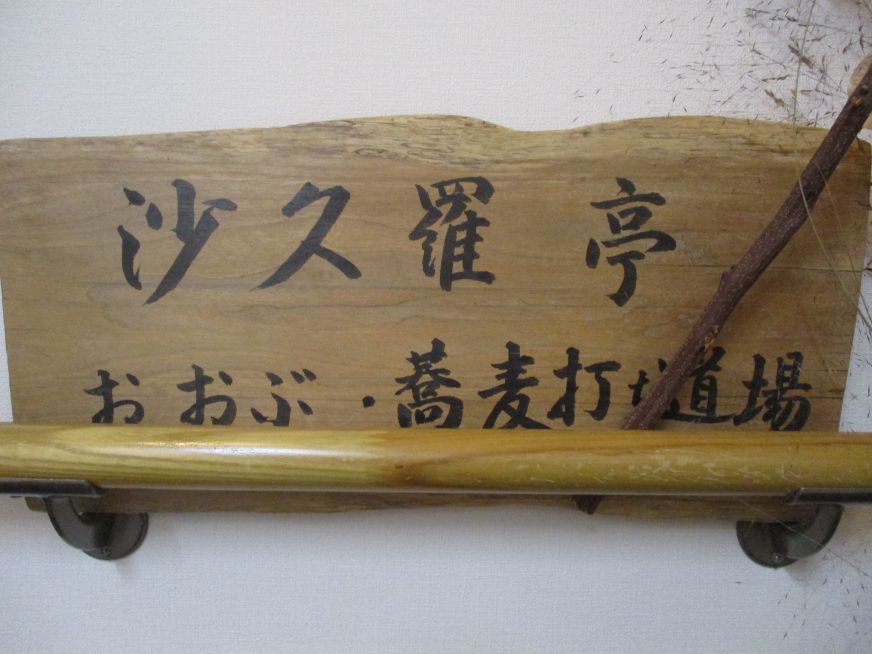 沙久羅亭
おおぶ・蕎麦打ち道場